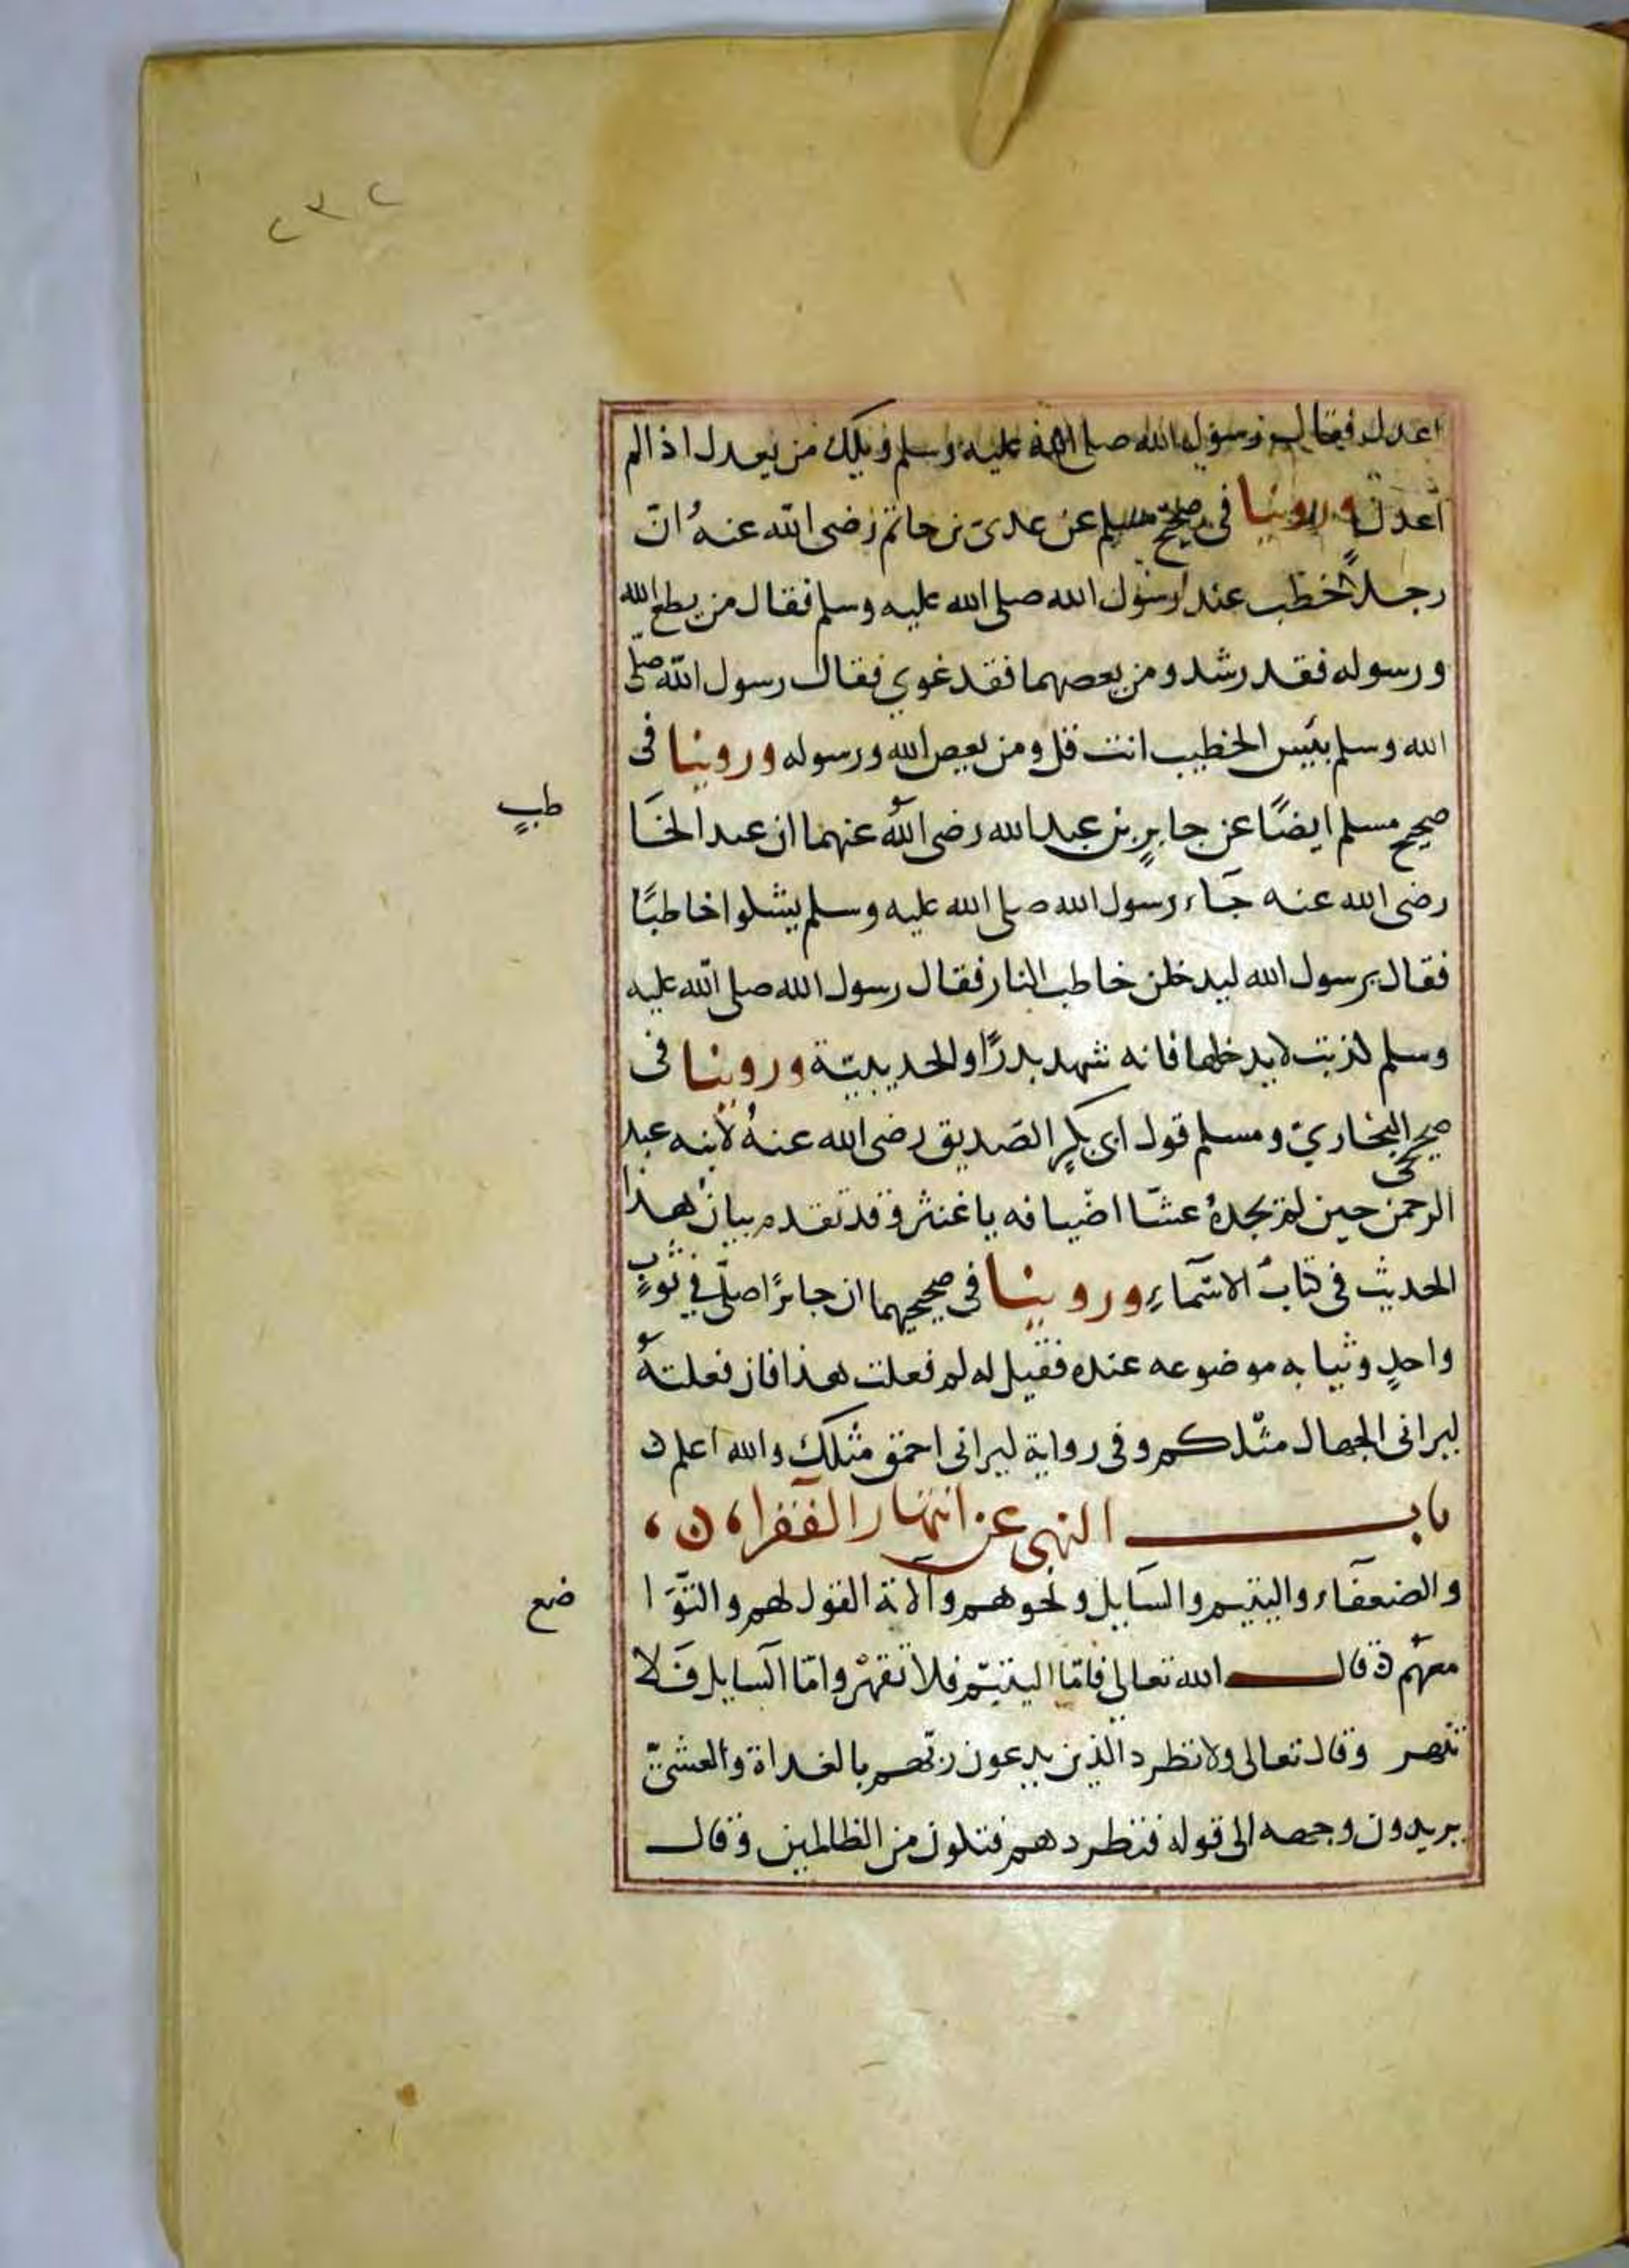 ٢٣٢
اعدل فقال رسول الله صلى الله عليه وسلم ويلك من يعدل اذا لم
اعدل وروينا في صحيح مسلم عن عدي بن حاتم رضى الله عنه ان
رجلا خطب عند رسول الله صلى الله عليه وسلم فقال من يطع الله
ورسوله فقد رشد ومن يعصهما فقد غوي فقال رسول الله صلى
الله وسلم بئيس الخطيب انت قل ومن يعص الله ورسوله وروينا فى
صحيح مسلم ايضًا عن جابرٍ بن عبد الله رضى الله عنهما ان عبد الحَا
طبٍ
رضى الله عنه جَاء رسول الله صلى الله عليه وسلم يشلوا خاطبًا
فقال يرسول الله ليدخلن خاطب النار فقال رسول الله صلى الله عليه
وسلم كذبت لايدخلها فانه شهد بدرًا والحديبيّة وروينا فى
صحيحي البخاريّ ومسلم قول ابى بكرٍ الصّديق رضى الله عنهُ لابنه عبد
الرحمن حين لم يجدهُ عشّا اضيافه ياغنثر وقد تقدم بيان هذا
الحديث فى كتاب الاسمآءِ وروينا فى صحيحيهما ان جابرًا صلّى في ثوبٍ
واحدٍ وثيابه موضوعه عنده فقيل له لم فعلت هذا فان فعلتهُ
ليرانى الجهال مثلكم وفى رواية ليرانى احمق مثلك والله اعلم ن
باب النهى عن انتهار الفقراء ن
والضعفآء واليتيم والسَايل ونحوهم والانة القول لهم والتّوَا
ضع
معهم ن قال الله تعالى فامّا اليتيم فلا تقهرْ وامّا السايل فَلا
تنهر وقال تعالى ولا تطرد الذين يدعون ربّهم بالغداة والعشىّ
يريدون وجهه الى قوله فتطردهم فتكون من الظالمين وقال